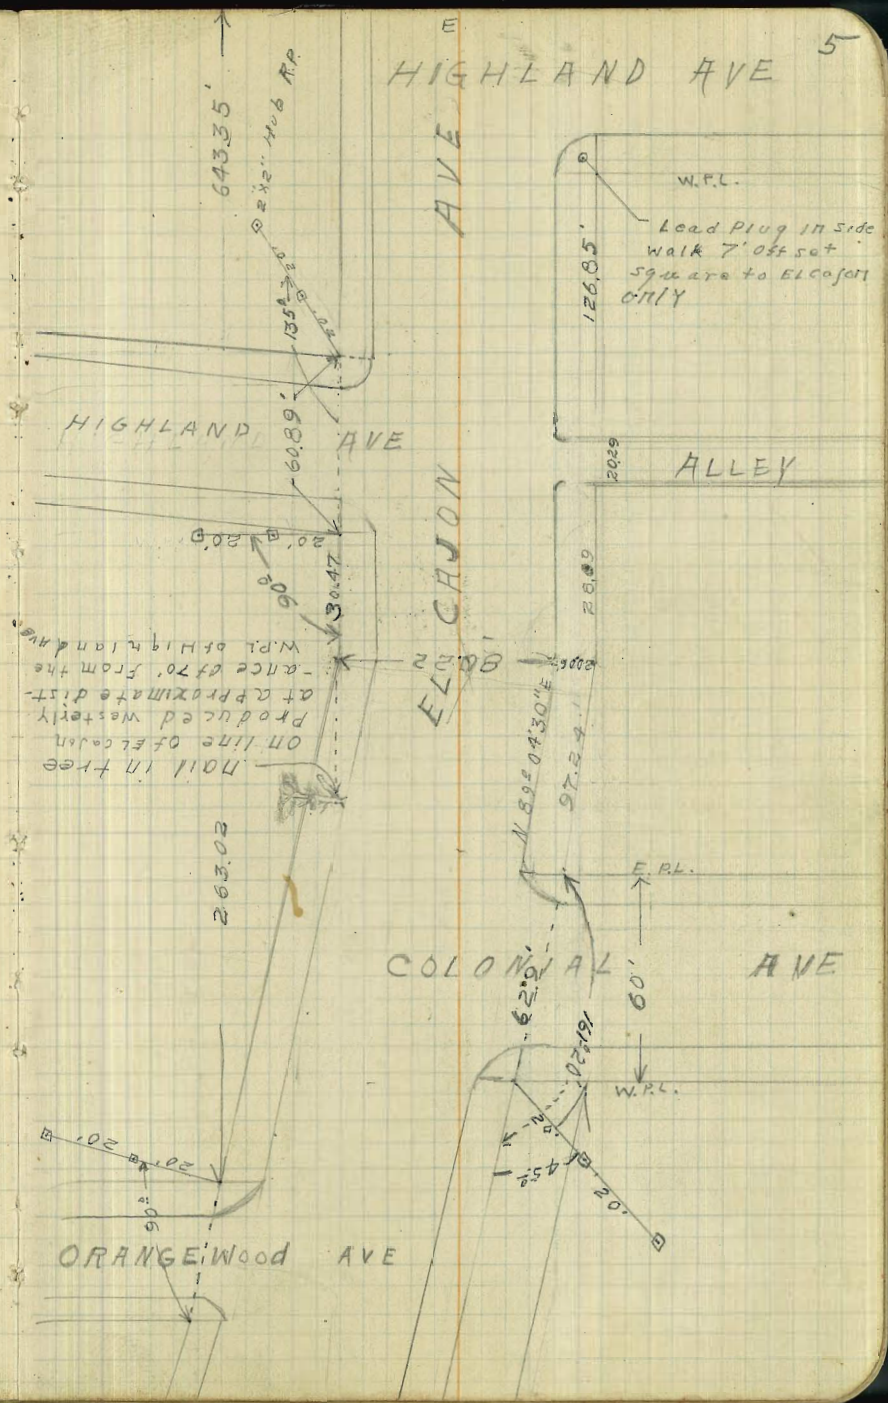 5
E
HIGHLAND AVE
643.35'
2"x2" Hub R.P.
20'
20'
135°
W.P.L.
Lead Plug in side
walk 7' offset
square to El Cajon
only
126.85'
HIGHLAND AVE
60.89'
EL CAJON AVE
20.29
ALLEY
20'
20'
90°
30.47
28.09
80.22'
20.06
nail in tree
on line of El Cajon
Produced westerly
at approximate dist-
-ance of 70' from the
W.P.L of Highland Ave
N 89° 04' 30" E
97.24'
263.02
E.P.L.
COLONIAL AVE
62.9'
60'
161.20
W.P.L.
20'
20'
45°
20'
20'
90°
ORANGEWood AVE